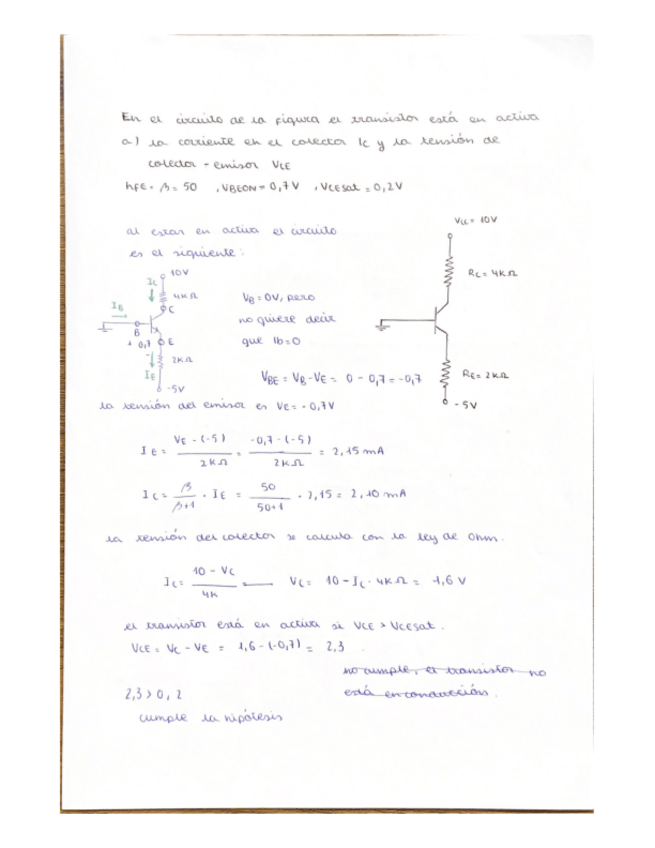 En el circuito de la figura el transistor está en activa
a) la corriente en el colector Ic y la tensión de
colector - emisor VCE
hFE = β = 50 , VBEON = 0,7 V , VCEsat = 0,2 V
al estar en activa el circuito
es el siguiente:
VCC = 10V
RC = 4KΩ
RE = 2KΩ
-5V
10V
IC
4KΩ
C
IB
B
+ 0,7
-
E
2KΩ
IE
-5V
VB = 0V, pero
no quiere decir
que Ib = 0
VBE = VB - VE = 0 - 0,7 = -0,7
la tensión del emisor es VE = -0,7V
IE = VE - (-5) / 2KΩ = -0,7 - (-5) / 2KΩ = 2,15 mA
IC = β / β+1 · IE = 50 / 50+1 · 2,15 = 2,10 mA
la tensión del colector se calcula con la ley de Ohm.
IC = 10 - VC / 4K VC = 10 - IC · 4KΩ = 1,6 V
el transistor está en activa si VCE > VCEsat.
VCE = VC - VE = 1,6 - (-0,7) = 2,3
no cumple, el transistor no
está en conducción.
2,3 > 0,2
cumple la hipótesis